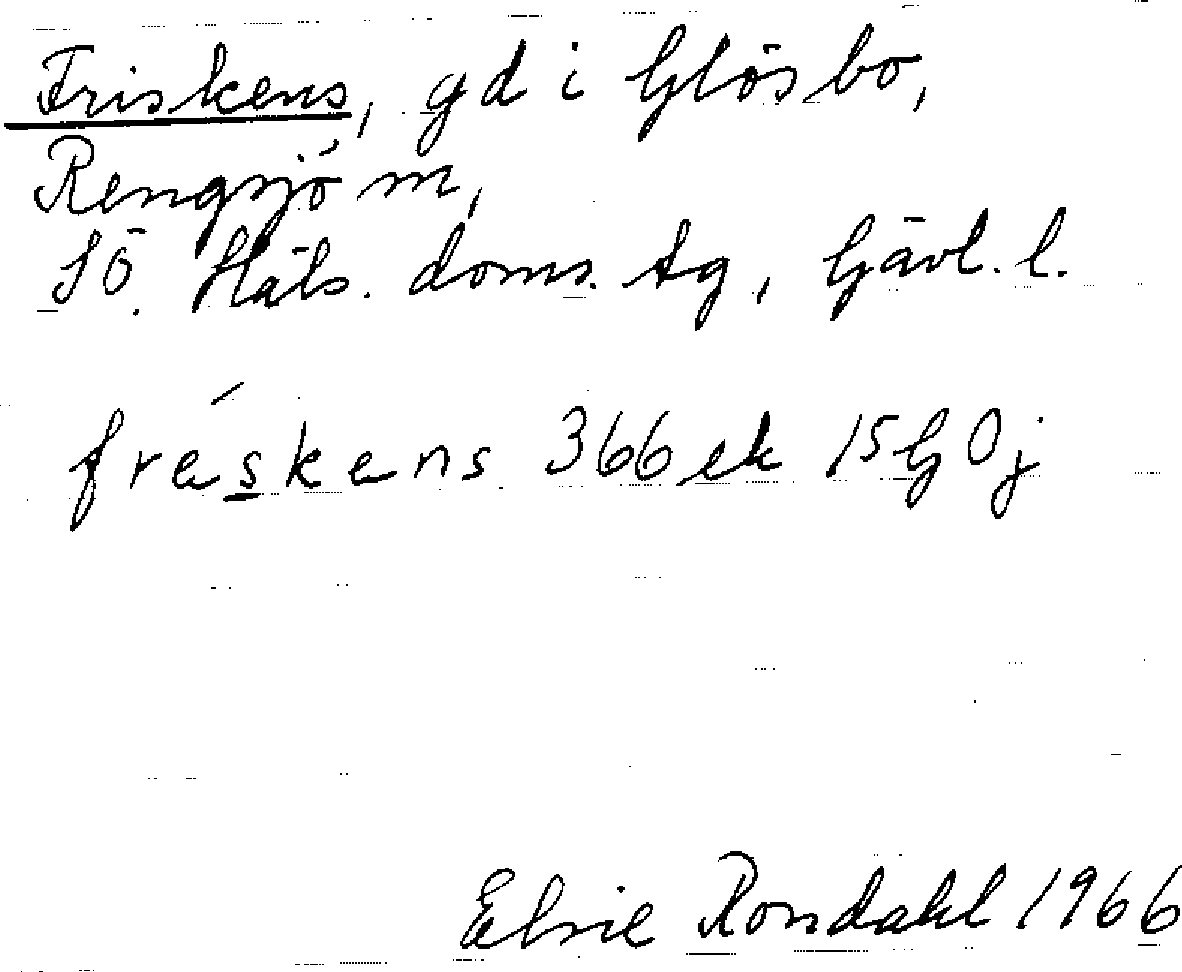 Friskens, gd i Glösbo,
Rengsjö sn,
SÖ. Häls. doms. tg, Gävl. l.
fréskens 366 ek 15G0j
Elsie Rondahl 1966